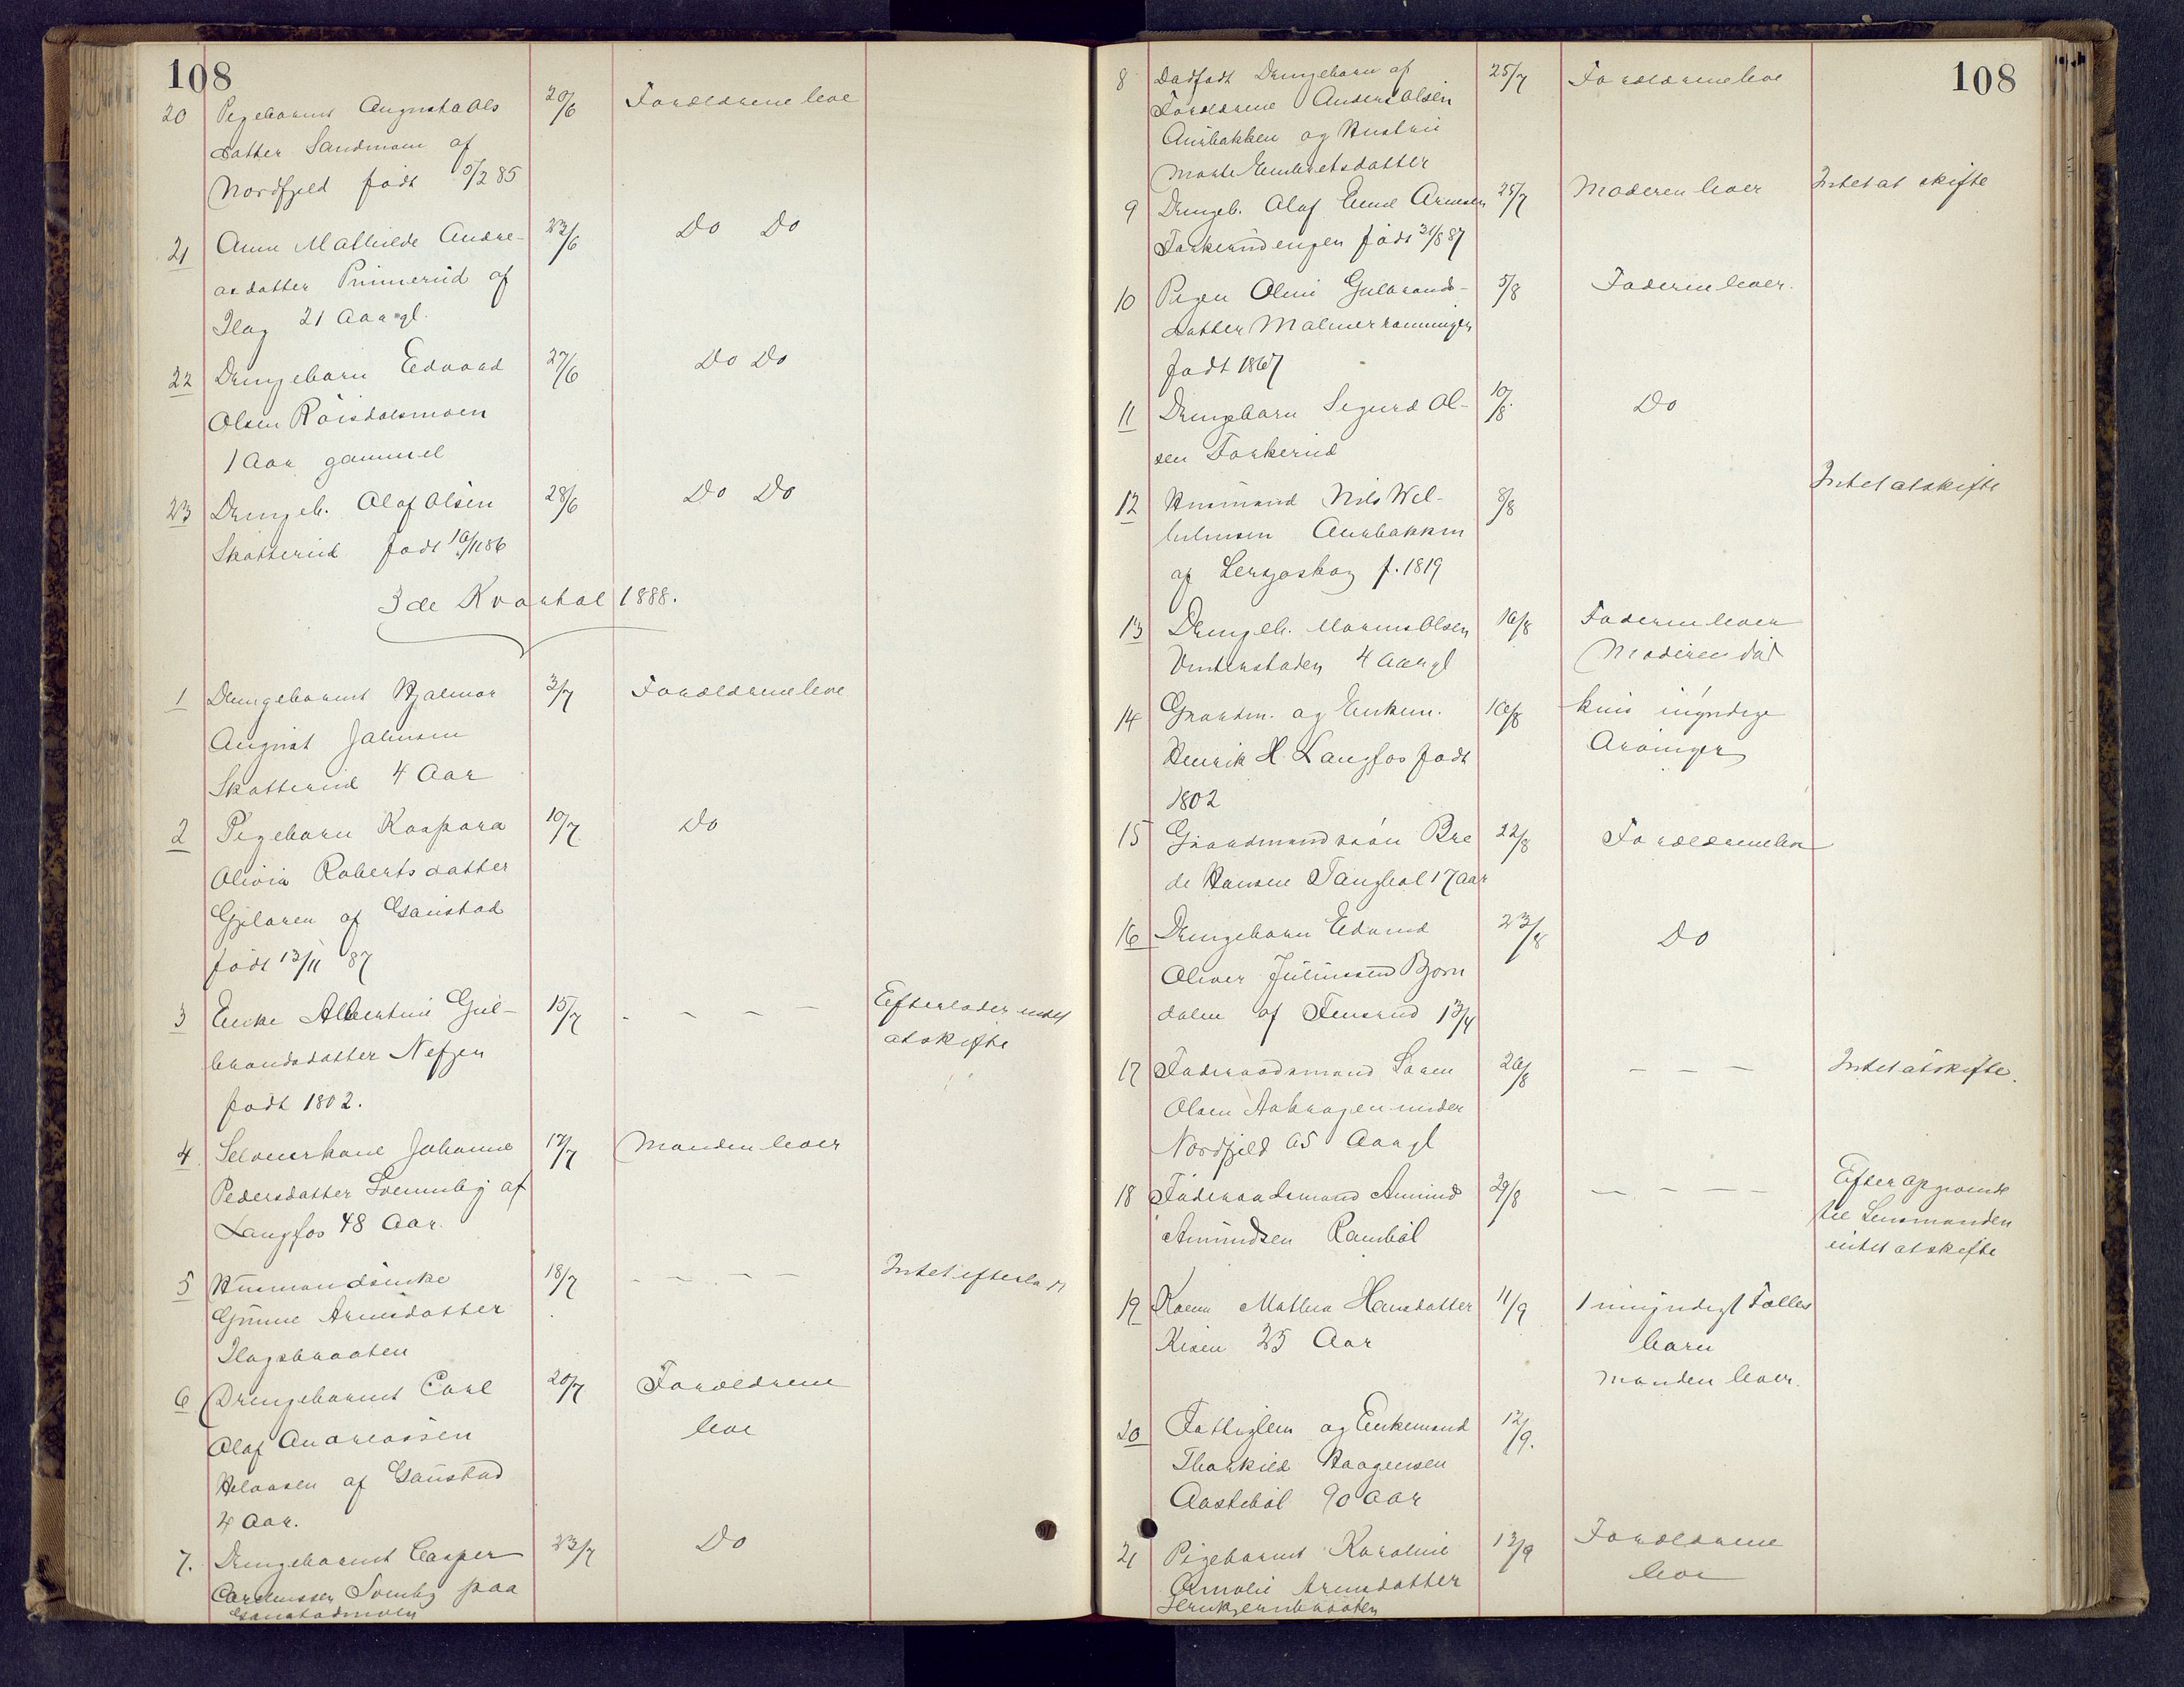 108
20 Pigebarnet Augusta Ols 20/6 Forældrene leve
datter Sandmoen af
Nordfjeld født 5/2 85
21 Anne Mathilde Andre- 23/6 Do Do
asdatter Pinnerud af
Ilag 21 Aar gl.
22 Drengebarn Edvard 27/6 Do Do
Olsen Röisdalsmoen
1 Aar gammel
23 Drengeb. Olaf Olsen 28/6 Do Do
Skotterud født 16/11 86
3de Kvartal 1888.
1 Drengebarnet Hjalmar 3/7 Forældrene leve
August Johnsen
Skotterud 4 Aar
2 Pigebarn Kaspara 10/7 Do
Olivia Robertsdatter
Gjilaren af Gaustad
født 13/11 87
3 Enke Albertine Gul- 15/7 - - - - Efterlader intet
brandsdatter Nefzen at skifte
født 1802.
4 Selveierkone Johanne 17/7 Manden lever
Pedersdatter Svenneby af
Langfos 48 Aar.
5 Husmandsenke 18/7 - - - - Intet efterladt
Gunne Arnesdatter
Ilagsbraaten
6 Drengebarnet Carl 20/7 Forældrene
Olaf Andreassen leve
Helaasen af Gaustad
4 Aar.
7. Drengebarnet Casper 23/7 Do
Svenby paa
Gaustadmoen
108
8 Dødfødt Drengebarn af 25/7 Forældrene leve
Forældrene Anders Olsen
Aurbakken og Hustru
Marte Embretsdatter
9 Drengeb. Olaf Emil Arnesen 25/7 Moderen lever Intet at skifte
Torkerudengen født 31/8 87
10 Pigen Oline Gulbrands- 5/8 Faderen lever.
datter Malmerkamungen
født 1867
11 Drengebarn Sigurd Ol- 10/8 Do
sen Torkerud
12 Husmand Nils Wil- 8/8 Intet at skifte
helmsen Aurbakken
af Lersjøskog f. 1819
13 Drengeb. Olsen 16/8 Faderen lever
Vinterstaden 4 Aar gl Moderen død
14 Gaardm. og Enkem. 16/8 kun myndige
Henrik H. Langfos født Arvinger
1802
15 Gaardmandssøn Bre 22/8 Forældrene leve
de Hansen Tangbøl 17 Aar
16 Drengebarn Edvard 23/8 Do
Oliver Juliussen Bjørn
dalen af Tensrud 13/4
17 Føderaadsmand Søren 26/8 - - - Intet at skifte.
Olsen Aabrogen under
Nordfjeld 65 Aar gl
18 Føderaadsmand Amund 29/8 - - - - Efter opgivende
Amundsen Rambøl til Lensmanden
intet at skifte
19 Kone Mathea Hansdatter 11/9 1 umyndigt Fælles
Risen 25 Aar barn
Manden lever.
20 Fattiglem og Enkemand 12/9.
Thorkild Haagensen
Aastebøl 90 Aar
21 Pigebarnet Karoline 13/9 Forældrene
Amalie Arnesdatter leve